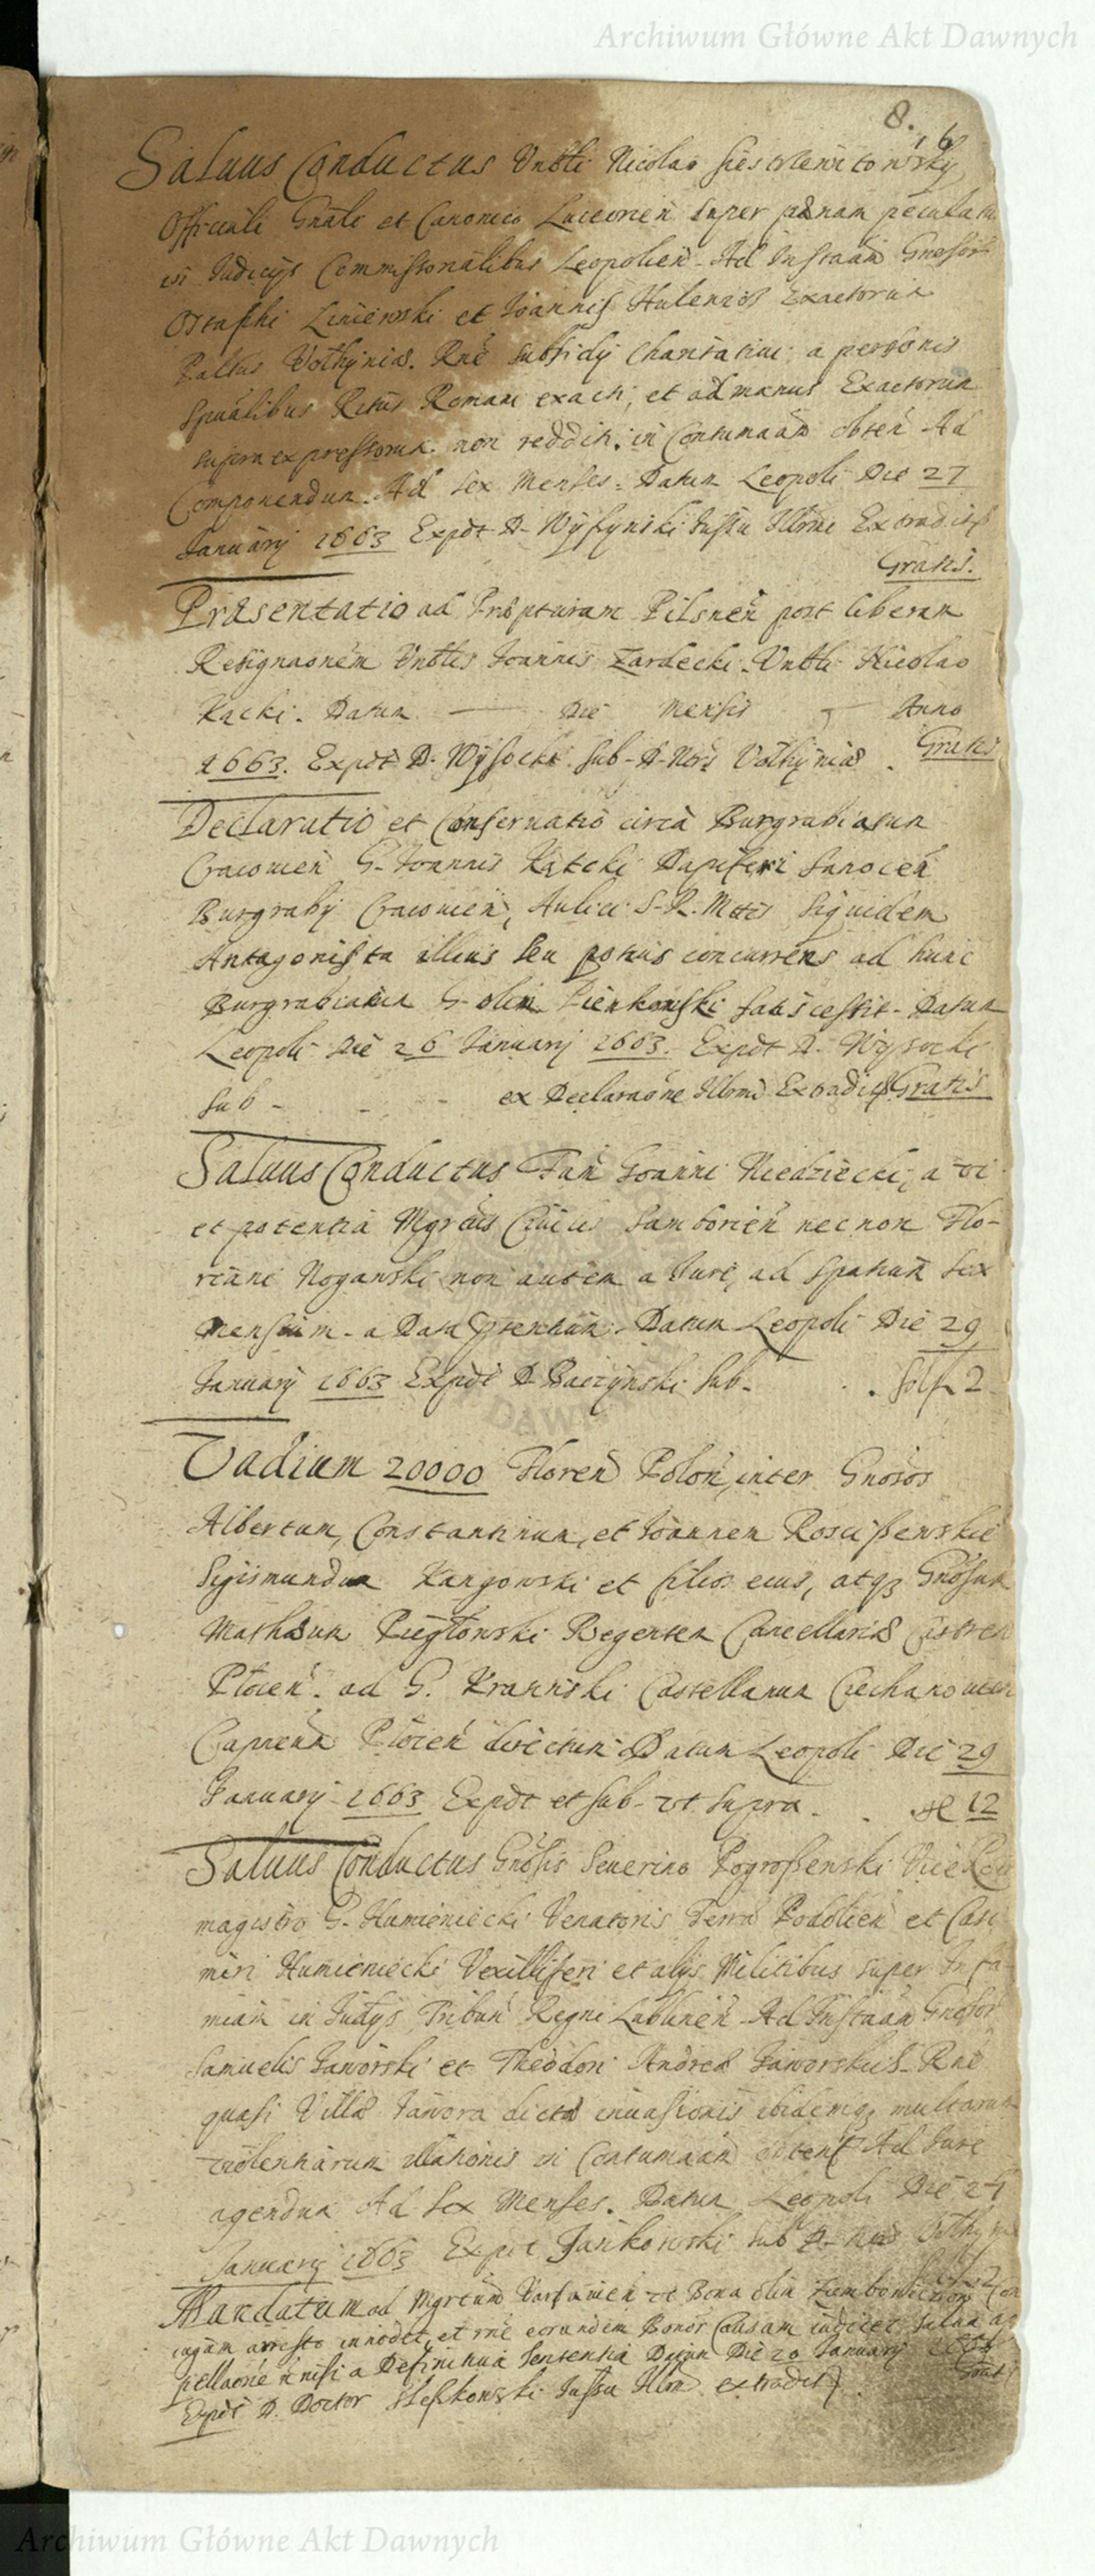 Archiwum Główne Akt Dawnych
8.
16
Saluus Conductus Vnbli Nicolao
Officiali Gnâli et Canonico Luceorien super pænam peculatu
in Iudicijs Commissionalibus Leopolien. Ad Instaãm Gnosor
Ostaphi Liniewski et Joannis Hulewicz Exactorum
Paltus Volhyniæ. Rne subsidij Charitatiui a personis
Spũalibus Ritus Romani exacti, et ad manus Exactorum
supra expressorum non redditi, in Contumaãm obten Ad
Componendum. Ad sex Menses. Datum Leopoli Die 27
Januarij 1663 Expdt D. Wyszynski Jussu Illrmi Extradit
Gratis.
Præsentatio ad Præpturam Pilsnen post liberam
Resignaonem Vnblis Joannis Zardecki. Vnbli Nicolao
Kącki. Datum — Die Mensis — Anno
1663. Expdt D. Wysocki Sub-D-Nris Volhyniæ. Gratis
Declaratio et Conseruatio circa Burgrabiatum
Cracouien G. Joannis Kątcki Dapiferi Sanocen
Burgrabij Cracouien, Aulici S. R. Mttis siquidem
Antagonista illius seu potius concurrens ad hunc
Burgrabiatum G. olim Pienkowski satis cessit. Datum
Leopoli Die 26 Januarij 1663. Expdt D. Wysocki
Sub - - - ex Declaraone Illrmi Extradit Gratis
Saluus Conductus Fam Joanni Niedziecki, a vi
et potentia Mgrtus Ciuii Samborien necnon Flo-
riani Noganski non autem a Iure, ad Spatium sex
Mensium a Data Pntium. Datum Leopoli Die 29
Januarij 1663 Expdt D. Baczynski Sub. . . Solf 2
Vadium 20000 Floren Polon, inter Gnosos
Albertum, Constantinum, et Joannem Rosciszewskie
Sigismundum Kargowski et filios eius, atq Gnosum
Mathæum Piegłowski Regentem Cancellariæ Castren
Płocen. ad G. Krasinski Castellanum Ciechanouien
Capneum Płocen directum Datum Leopoli Die 29
Januarij 1663 Expdt et sub. vt supra. . 12
Saluus Conductus Gnosis Seuerino Pogroszewski Vice
magistro G. Humieniecki Venatoris Terræ Podolien et Casi
miri Humieniecki Vexilliferi et alijs Militibus super Infa-
miam in Iudijs Tribun Regni Lublinen. Ad Instaãm Gnosor
Samuelis Jaworski et Theodori Andreæ Jaworskich. Rne
quasi Villæ Jawora dictæ inuasionis ibidemq multarum
violentiarum illationis in Contumaãm obtent Ad Iure
agendum Ad sex Menses. Datum Leopoli Die 27
Januarij 1663 Expdt Jankowski Sub D-Nris Volhyniæ
Mandatum ad Mgrtum Varsauien vt Bona olim
arresto innodet, et rne eorundem Bonor Causam iudicet salua
pellaone nisi a Definitiua Sententia Datum Die 20 Januarij
Expdt D. Doctor Jussu Illrmi extradit. Grat
Archiwum Główne Akt Dawnych